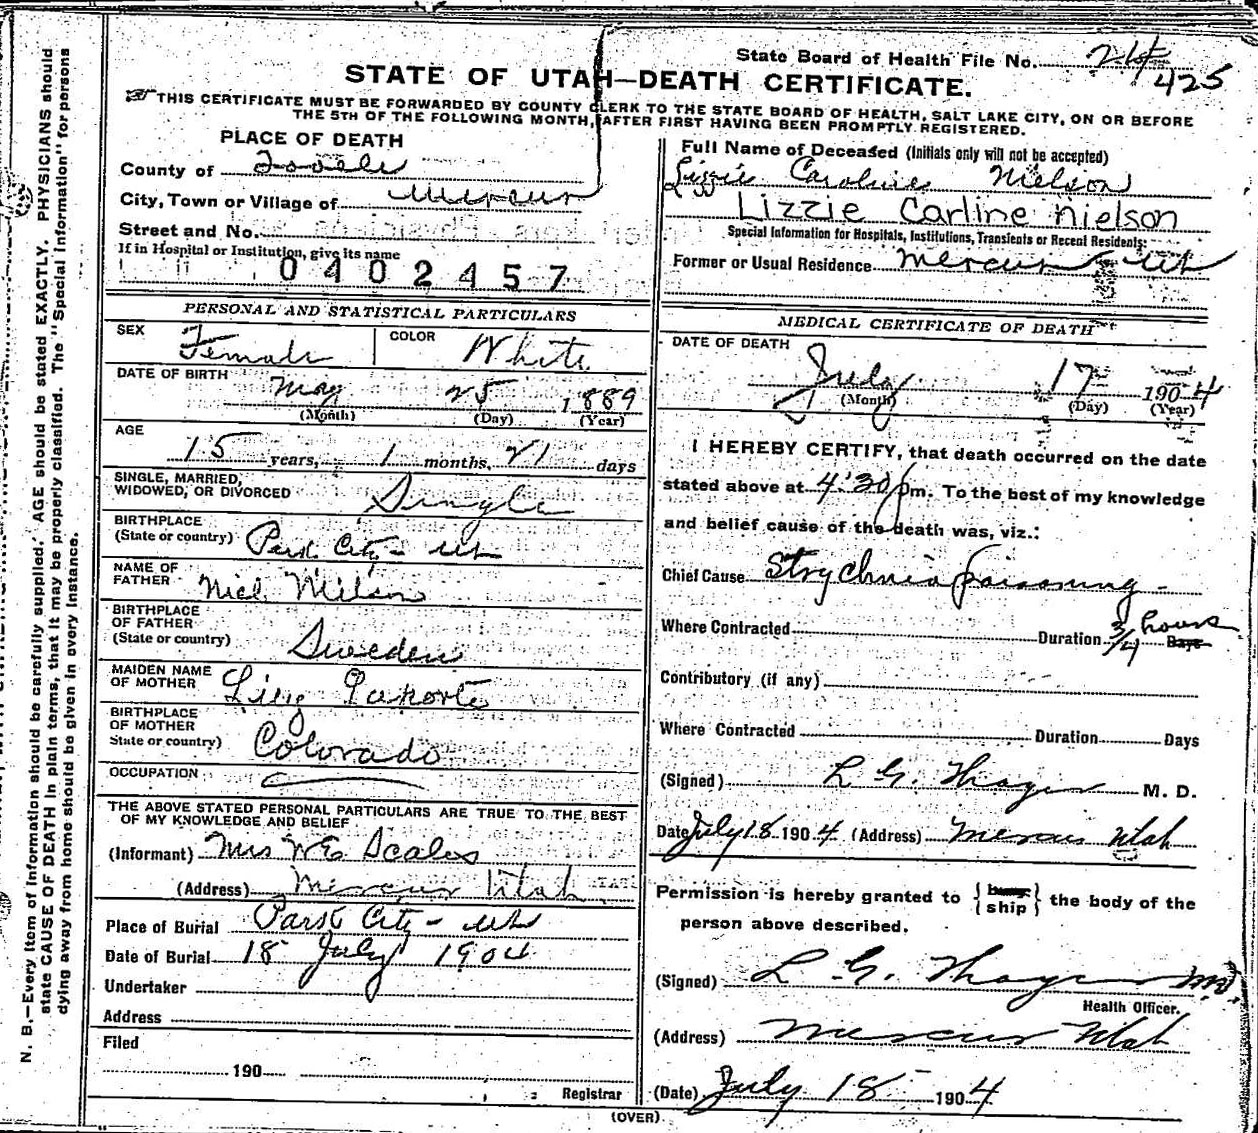 State Board of Health File No. 24
425
STATE OF UTAH—DEATH CERTIFICATE.
THIS CERTIFICATE MUST BE FORWARDED BY COUNTY CLERK TO THE STATE BOARD OF HEALTH, SALT LAKE CITY, ON OR BEFORE
THE 5TH OF THE FOLLOWING MONTH, AFTER FIRST HAVING BEEN PROMPTLY REGISTERED.
PLACE OF DEATH
County of Tooele
City, Town or Village of Mercur
Street and No.
If in Hospital or Institution, give its name
0402457
Full Name of Deceased (Initials only will not be accepted)
Lizzie Caroline Nielson
Lizzie Carline Nielson
Special Information for Hospitals, Institutions, Transients or Recent Residents:
Former or Usual Residence Mercur Ut
PERSONAL AND STATISTICAL PARTICULARS
SEX Female COLOR White
DATE OF BIRTH May 25 1889
(Month) (Day) (Year)
AGE
15 years, 1 months, 21 days
SINGLE, MARRIED,
WIDOWED, OR DIVORCED Single
BIRTHPLACE
(State or country) Park City - Ut
NAME OF
FATHER Niel Nilson
BIRTHPLACE
OF FATHER
(State or country) Sweden
MAIDEN NAME
OF MOTHER
BIRTHPLACE
OF MOTHER
State or country) Colorado
OCCUPATION
THE ABOVE STATED PERSONAL PARTICULARS ARE TRUE TO THE BEST
OF MY KNOWLEDGE AND BELIEF
(Informant) Mrs WE Scales
(Address) Mercur Utah
Place of Burial Park City - Ut
Date of Burial 18 July 1904
Undertaker
Address
Filed
190
Registrar
MEDICAL CERTIFICATE OF DEATH
DATE OF DEATH
July 17 1904
(Month) (Day) (Year)
I HEREBY CERTIFY, that death occurred on the date
stated above at 4:30 pm. To the best of my knowledge
and belief cause of the death was, viz.:
Chief Cause Strychnia poisoning -
Where Contracted Duration 3/4 hours Days
Contributory (if any)
Where Contracted Duration Days
(Signed) L G. Thayer M. D.
Date July 18 1904 (Address) Mercur Utah
Permission is hereby granted to { bury ship } the body of the
person above described.
(Signed) L. G. Thayer MD.
Health Officer.
(Address) Mercur Utah
(Date) July 18 1904
(OVER)
N. B.—Every item of information should be carefully supplied. AGE should be stated EXACTLY. PHYSICIANS should
state CAUSE OF DEATH in plain terms, that it may be properly classified. The "Special Information" for persons
dying away from home should be given in every instance.